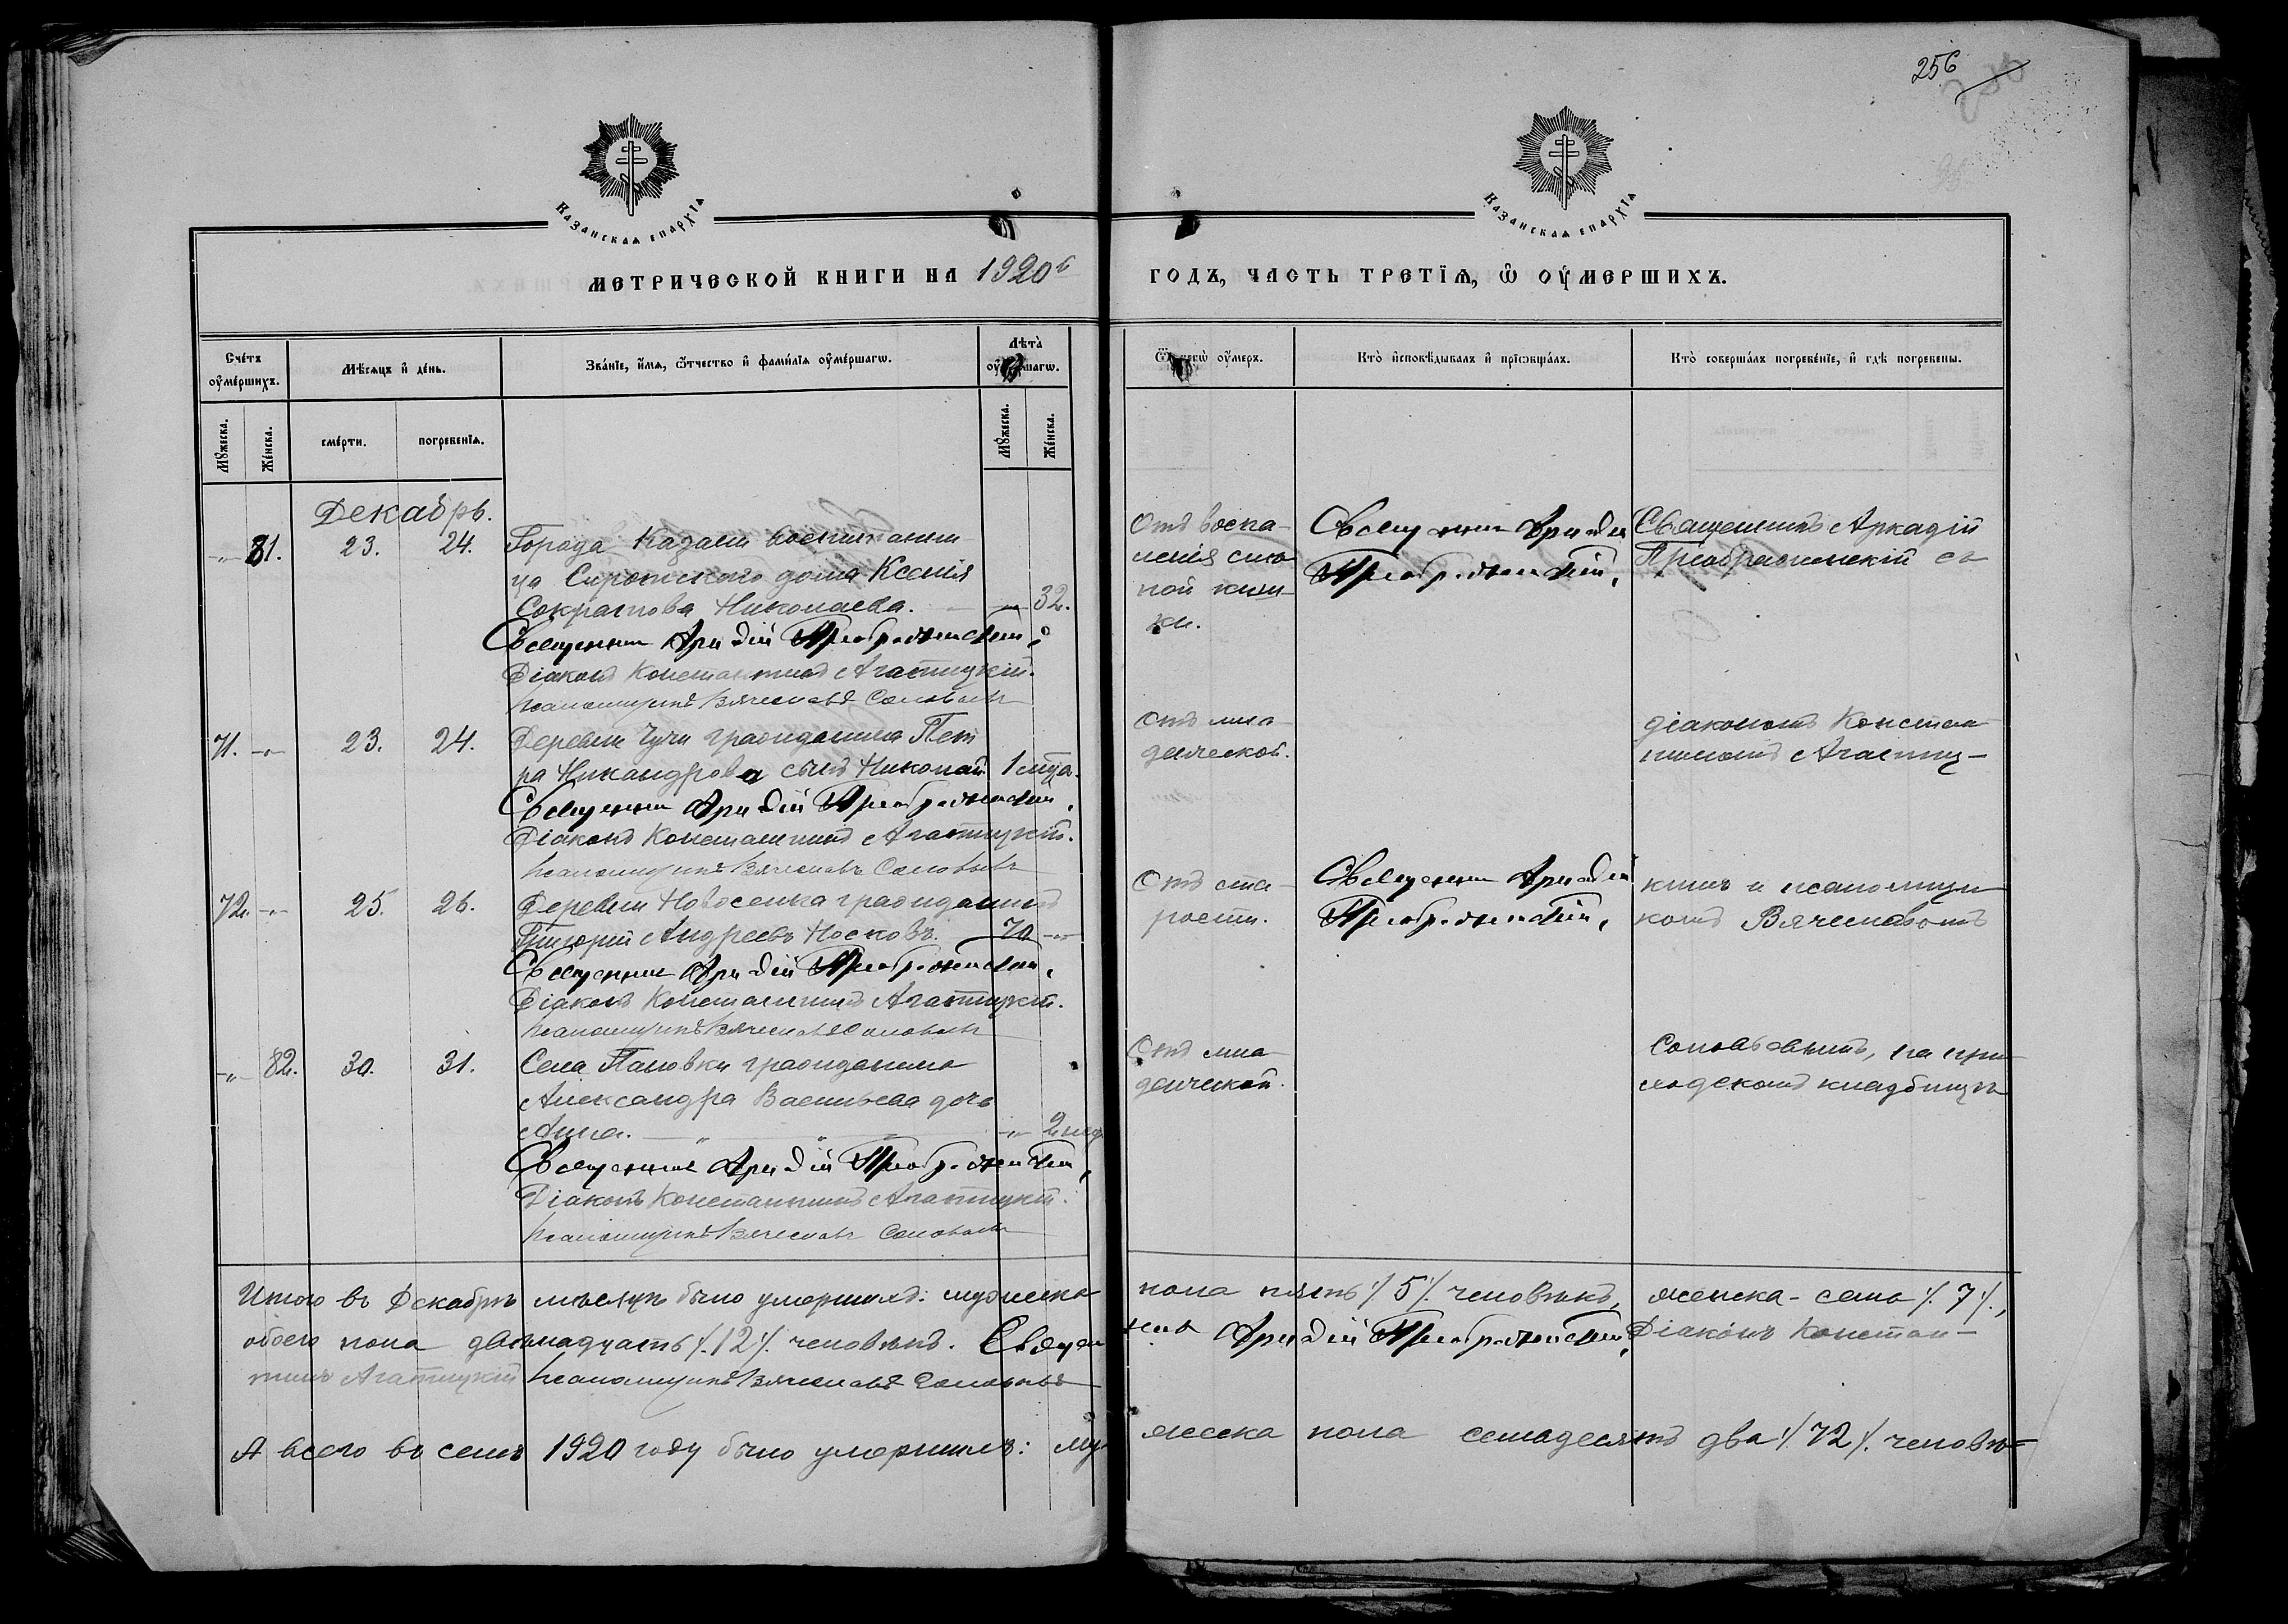 256
Казанская епархія
Казанская епархія
метрической книги на 1920й
годъ, часть третїѧ, ѡ оумершихъ.
Счетъ оумершихъ.
Мѣсѧцъ и день.
Званїе, имѧ, ѿчество и фамилїѧ оумершагѡ.
Лѣта оумершагѡ.
Ѿ чегѡ оумеръ.
Кто исповѣдывалъ и прїѡбщалъ.
Кто совершалъ погребенїе, и гдѣ погребены.
Мꙋжеска.
Женска.
смерти.
погребенїѧ.
Мꙋжеска.
Женска.
Декабрь.
-"- 81. 23. 24. Города Казани воспитанни
ца Сиротского дома Ксенія
Сократова Николаева. -"- 32.
Священник Аркадій Преображенскій.
Діаконъ Константинъ Агатицкій.
Псаломщикъ Вячеславъ Соловьевъ
Отъ воспа-
ленія слѣ
пой киш-
ки.
Священник Аркадій
Преображенскій.
Священникъ Аркадій
Преображенскій съ
71. -"- 23. 24. Деревни Чучи гражданина Пет
ра Никандрова сынъ Николай 1 мѣца.
Священник Аркадій Преображенскій.
Діаконъ Константинъ Агатицкій.
Псаломщикъ Вячеславъ Соловьевъ
Отъ мла-
денческой.
діакономъ Констан
тиномъ Агатиц-
72. -"- 25. 26. Деревни Новоселка гражданинъ
Григорій Андреевъ Носковъ. 70 -"-
Священник Аркадій Преображенскій.
Діаконъ Константинъ Агатицкій.
Псаломщикъ Вячеславъ Соловьевъ
Отъ ста-
рости.
Священник Аркадій
Преображенскій.
кимъ и псаломщи
комъ Вячеславомъ
-"- 82. 30. 31. Села Пановки гражданина
Александра Васильева дочь
Анна. -"- 2 нед
Священник Аркадій Преображенскій.
Діаконъ Константинъ Агатицкій.
Псаломщикъ Вячеславъ Соловьевъ
Отъ мла-
денческой.
Соловьевымъ, на при-
ходскомъ кладбищѣ
Итого въ Декабрѣ мѣсяцѣ было умершихъ: мужеска
пола пять ⁒ 5 ⁒ человѣкъ, женска - семь ⁒ 7 ⁒,
обоего пола двѣнадцать ⁒ 12 ⁒ человѣкъ. Священ
ник Аркадій Преображенскій. Діаконъ Констан-
тинъ Агатицкій Псаломщикъ Вячеславъ Соловьевъ
А всего въ семъ 1920 году было умершихъ: му
жеска пола семьдесятъ два ⁒ 72 ⁒ человѣ=